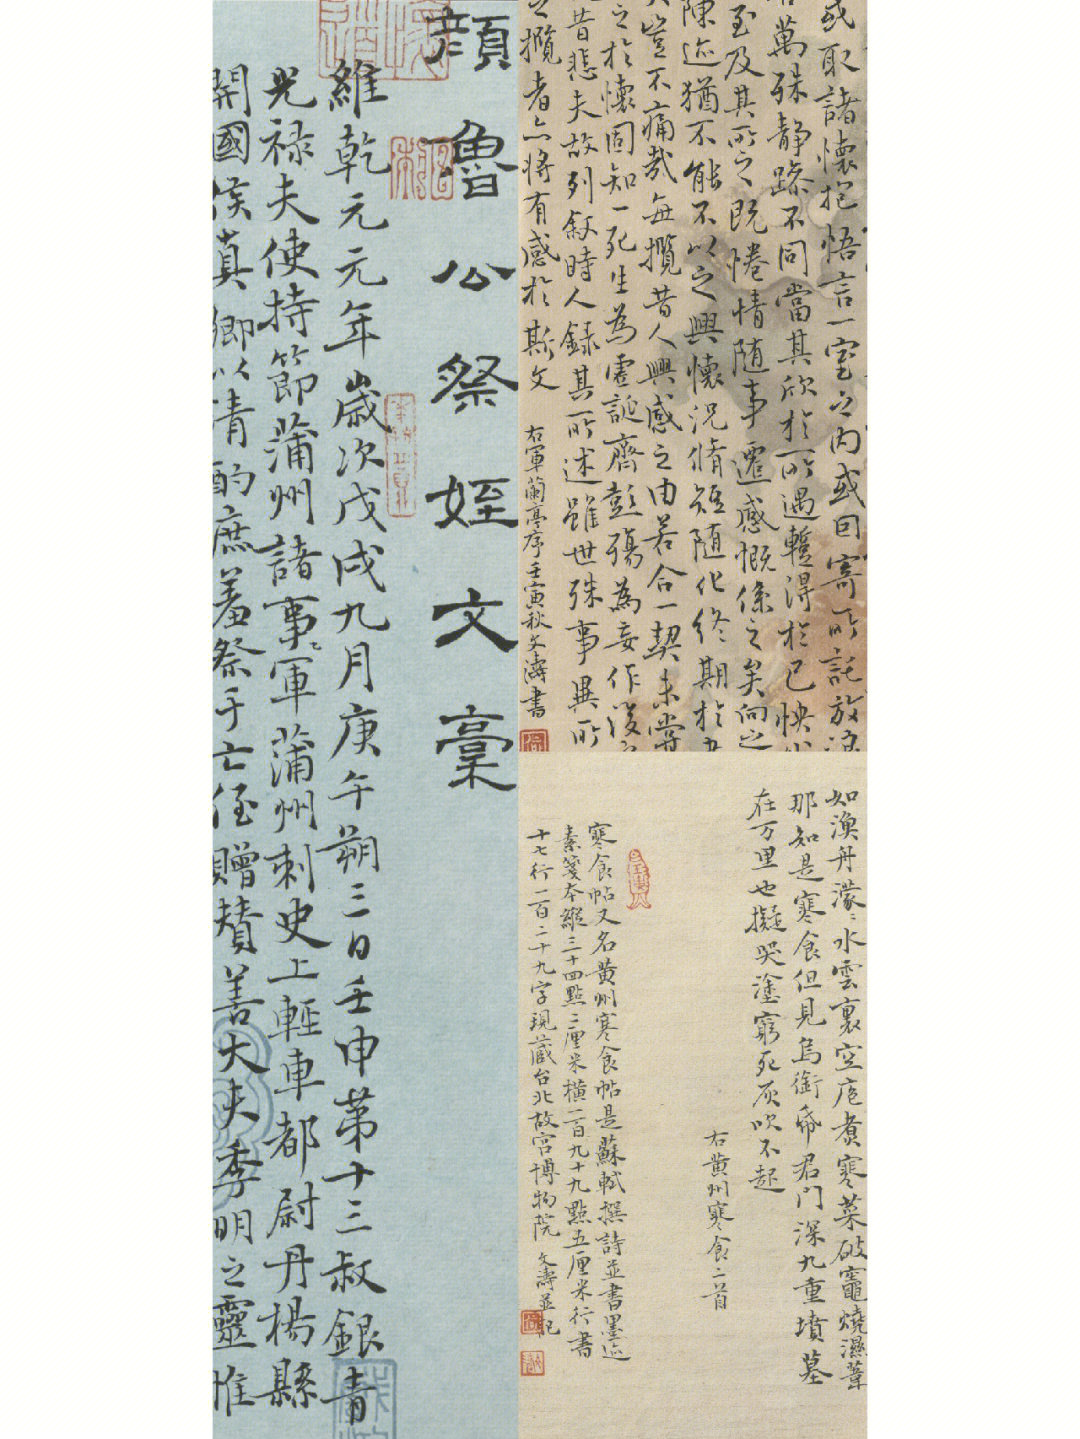 顏魯公祭姪文稾
維乾元元年歲次戊戌九月庚午朔三日壬申第十三叔銀青
光禄夫使持節蒲州諸事軍蒲州刺史上輕車都尉丹楊縣
開國侯真卿以清酌庶羞祭于亡侄贈賛善大夫季明之靈惟
或取諸懷抱悟言一室之内或因寄所託放浪
萬殊静躁不同當其欣於所遇暫得於己快
至及其所之既惓情随事遷感慨係之矣向之
陳迹猶不能不以之興懷况脩短随化終期於
豈不痛哉每攬昔人興感之由若合一契未嘗
之於懷固知一死生為虚誕齊彭殤為妄作後
昔悲夫故列叙時人録其所述雖世殊事異所
之攬者亦将有感於斯文
右軍蘭亭序壬寅秋文濤書
如漁舟濛〻水雲裏空庖煮寒菜破竈燒濕葦
那知是寒食但見烏銜帋君門深九重墳墓
在万里也擬哭塗窮死灰吹不起
右黄州寒食二首
寒食帖又名黄州寒食帖是蘇軾撰詩並書墨迹
素箋本縱三十四點二厘米横一百九十九點五厘米行書
十七行一百二十九字現藏台北故宫博物院 文濤並記